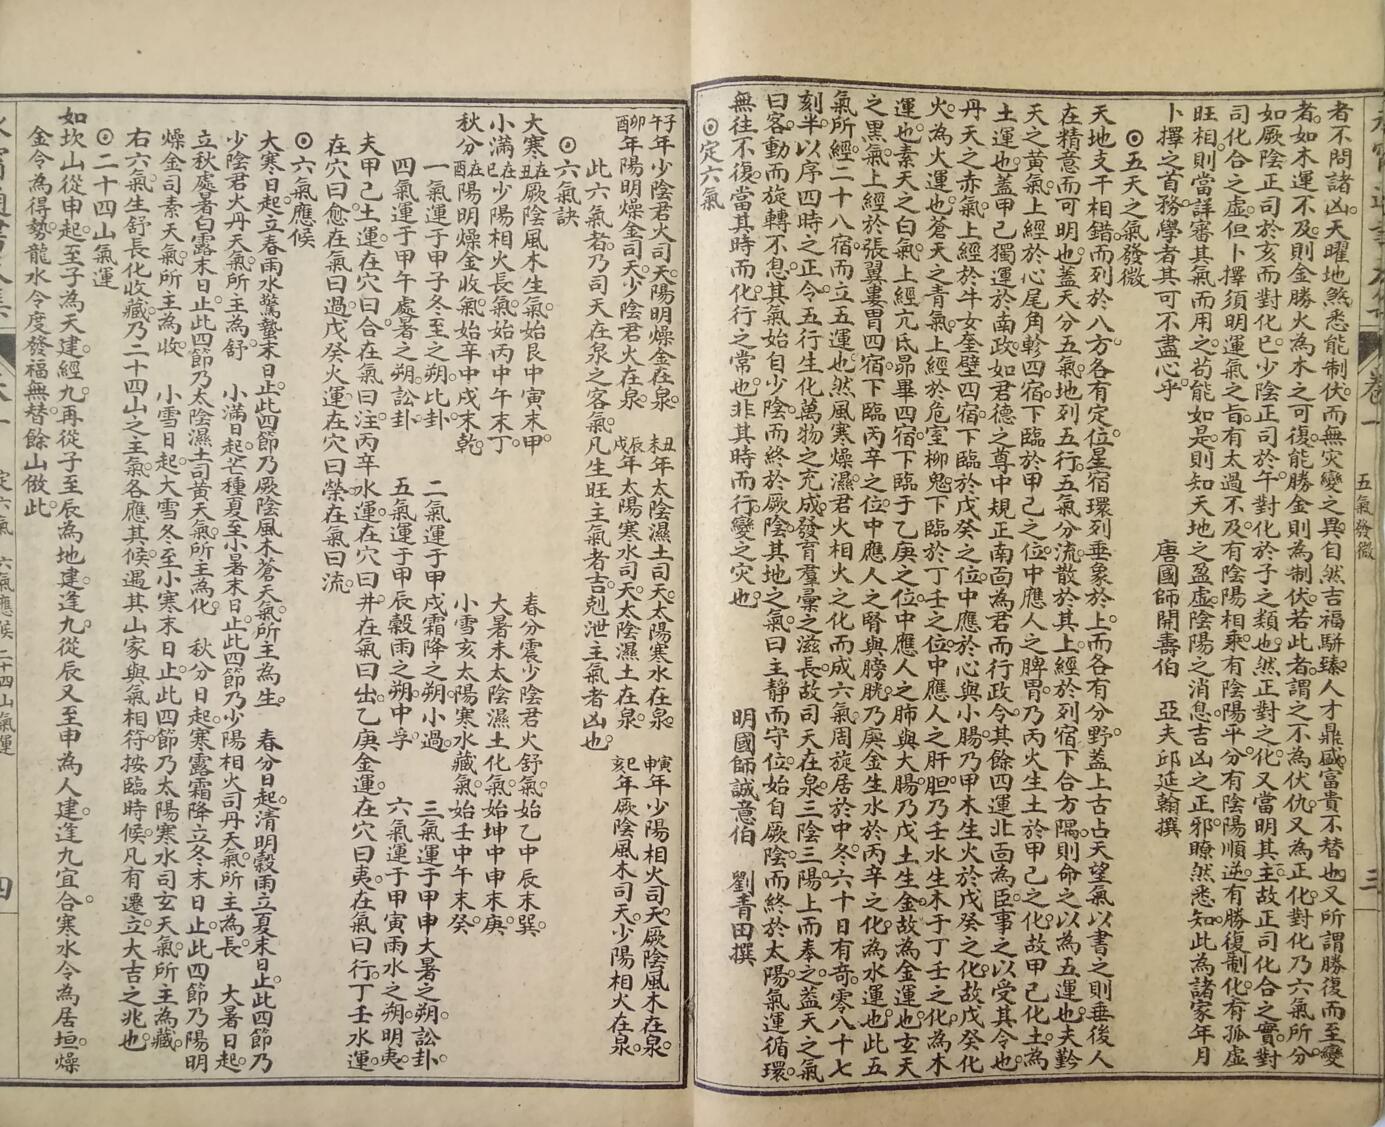 者不問諸凶天曜地煞悉能制伏而無灾變之異自然吉福駢臻人才鼎盛富貴不替也又所謂勝復而至變
者如木運不及則金勝火為木之可復能勝金則為制伏若此者謂之不為伏仇又為正化對化乃六氣所分
如厥陰正司於亥而對化巳少陰正司於午對化於子之類也然正對之化又當明其主故正司化合之實對
司化合之虛但卜擇須明運氣之旨有太過不及有陰陽相乘有陰陽平分有陰陽順逆有勝復制化有孤虛
旺相則當詳審其氣而用之苟能如是則知天地之盈虛陰陽之消息吉凶之正邪瞭然悉知此為諸家年月
卜擇之首務學者其可不盡心乎　唐國師開壽伯　亞夫邱延翰撰
⊙五天之氣發微
天地支干相錯而列於八方各有定位星宿環列垂象於上而各有分野蓋上古占天望氣以書之則垂後人
在精意而可明也蓋天分五氣地列五行五氣分流散於其上經於列宿下合方隅則命之以為五運也夫黔
天之黃氣上經於心尾角軫四宿下臨於甲己之位中應人之脾胃乃丙火生土於甲己之化故甲己化土為
土運也蓋甲己獨運於南政如君德之尊中規正南面為君而行政令其餘四運北面為臣事之以受其令也
丹天之赤氣上經於牛女奎壁四宿下臨於戊癸之位中應於心與小腸乃甲木生火於戊癸之化故戊癸化
火為火運也蒼天之青氣上經於危室柳鬼下臨於丁壬之位中應人之肝胆乃壬水生木于丁壬之化為木
運也素天之白氣上經亢氐昴畢四宿下臨于乙庚之位中應人之肺與大腸乃戊土生金故為金運也玄天
之黑氣上經於張翼婁胃四宿下臨丙辛之位中應人之腎與膀胱乃庚金生水於丙辛之化為水運也此五
氣所經二十八宿而立五運也然風寒燥濕君火相火之化而成六氣周旋居於中冬六十日有奇零八十七
刻半以序四時之正令五行生化萬物之充成發育羣彙之滋長故司天在泉三陰三陽上而奉之蓋天之氣
曰客動而旋轉不息其氣始自少陰而終於厥陰其地之氣曰主靜而守位始自厥陰而終於太陽氣運循環
無往不復當其時而化行之常也非其時而行變之灾也　明國師誠意伯　劉青田撰
⊙定六氣
子午年少陰君火司天陽明燥金在泉　丑未年太陰濕土司天太陽寒水在泉　寅申年少陽相火司天厥陰風木在泉
卯酉年陽明燥金司天少陰君火在泉　辰戌年太陽寒水司天太陰濕土在泉　巳亥年厥陰風木司天少陽相火在泉
此六氣者乃司天在泉之客氣凡生旺主氣者吉剋泄主氣者凶也
⊙六氣訣
大寒在丑厥陰風木生氣始艮中寅末甲　春分震少陰君火舒氣始乙中辰末巽
小滿在巳少陽相火長氣始丙中午末丁　大暑未太陰濕土化氣始坤中申末庚
秋分在酉陽明燥金收氣始辛中戌末乾　小雪亥太陽寒水藏氣始壬中午末癸
一氣運于甲子冬至之朔此卦　二氣運于甲戌霜降之朔小過　三氣運于甲申大暑之朔訟卦
四氣運于甲午處暑之朔訟卦　五氣運于甲辰穀雨之朔中孚　六氣運于甲寅雨水之朔明夷
夫甲己土運在穴曰合在氣曰注丙辛水運在穴曰井在氣曰出乙庚金運在穴曰夷在氣曰行丁壬水運
在穴曰愈在氣曰過戊癸火運在穴曰榮在氣曰流
⊙六氣應候
大寒日起立春雨水驚蟄末日止此四節乃厥陰風木蒼天氣所主為生　春分日起清明穀雨立夏末日止此四節乃
少陰君火丹天氣所主為舒　小滿日起芒種夏至小暑末日止此四節乃少陽相火司丹天氣所主為長　大暑日起
立秋處暑白露末日止此四節乃太陰濕土司黃天氣所主為化　秋分日起寒露霜降立冬末日止此四節乃陽明
燥金司素天氣所主為收　小雪日起大雪冬至小寒末日止此四節乃太陽寒水司玄天氣所主為藏
右六氣生舒長化收藏乃二十四山之主氣各應其候遇其山家與氣相符按臨時候凡有遷立大吉之兆也
⊙二十四山氣運
如坎山從申起至子為天建經九再從子至辰為地建逢九從辰又至申為人建逢九宜合寒水令為居垣燥
金令為得勢龍水令度發福無替餘山倣此
卷一
五氣發微
三
定六氣　六氣應候　二十四山氣運
四